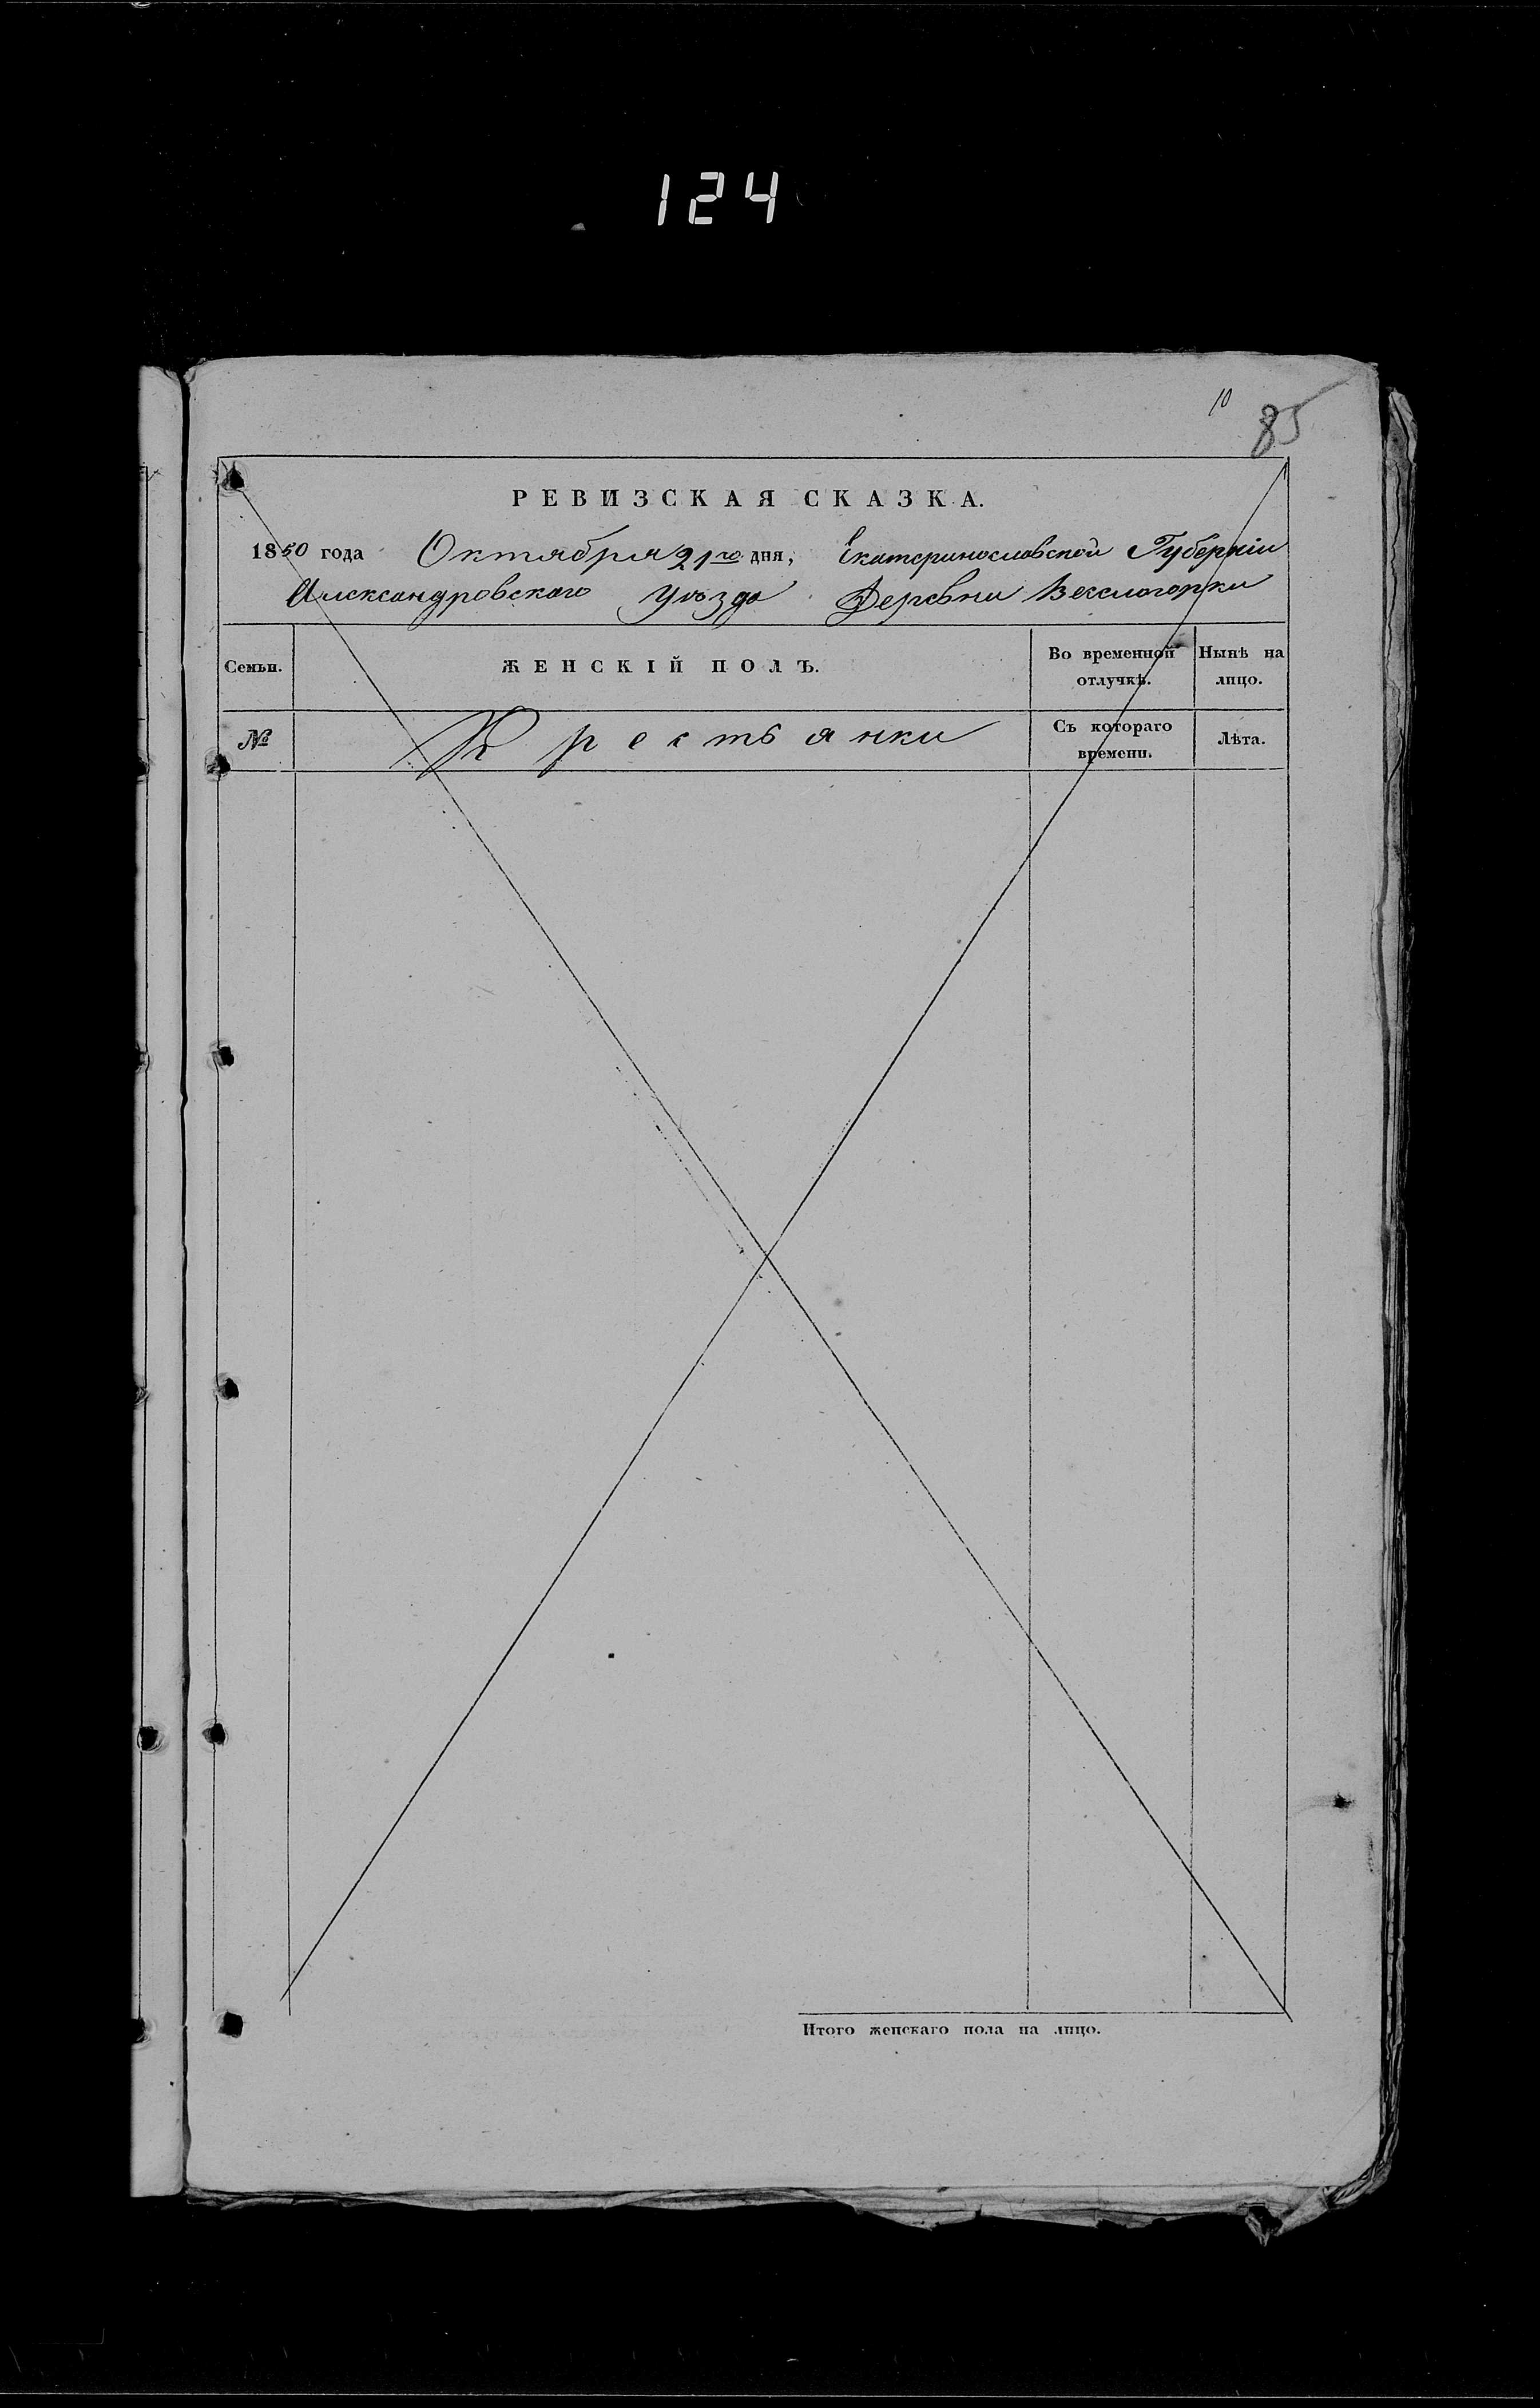 124
10
85
РЕВИЗСКАЯ СКАЗКА.
1850 года Октября 21го дня, Екатеринославской Губерніи
Александровскаго Уѣзда Деревни Веселогорки
Семьи.
ЖЕНСКІЙ ПОЛЪ.
Во временной отлучкѣ.
Нынѣ на лицо.
№
Крестьянки
Съ котораго времени.
Лѣта.
Итого женскаго пола на лицо.